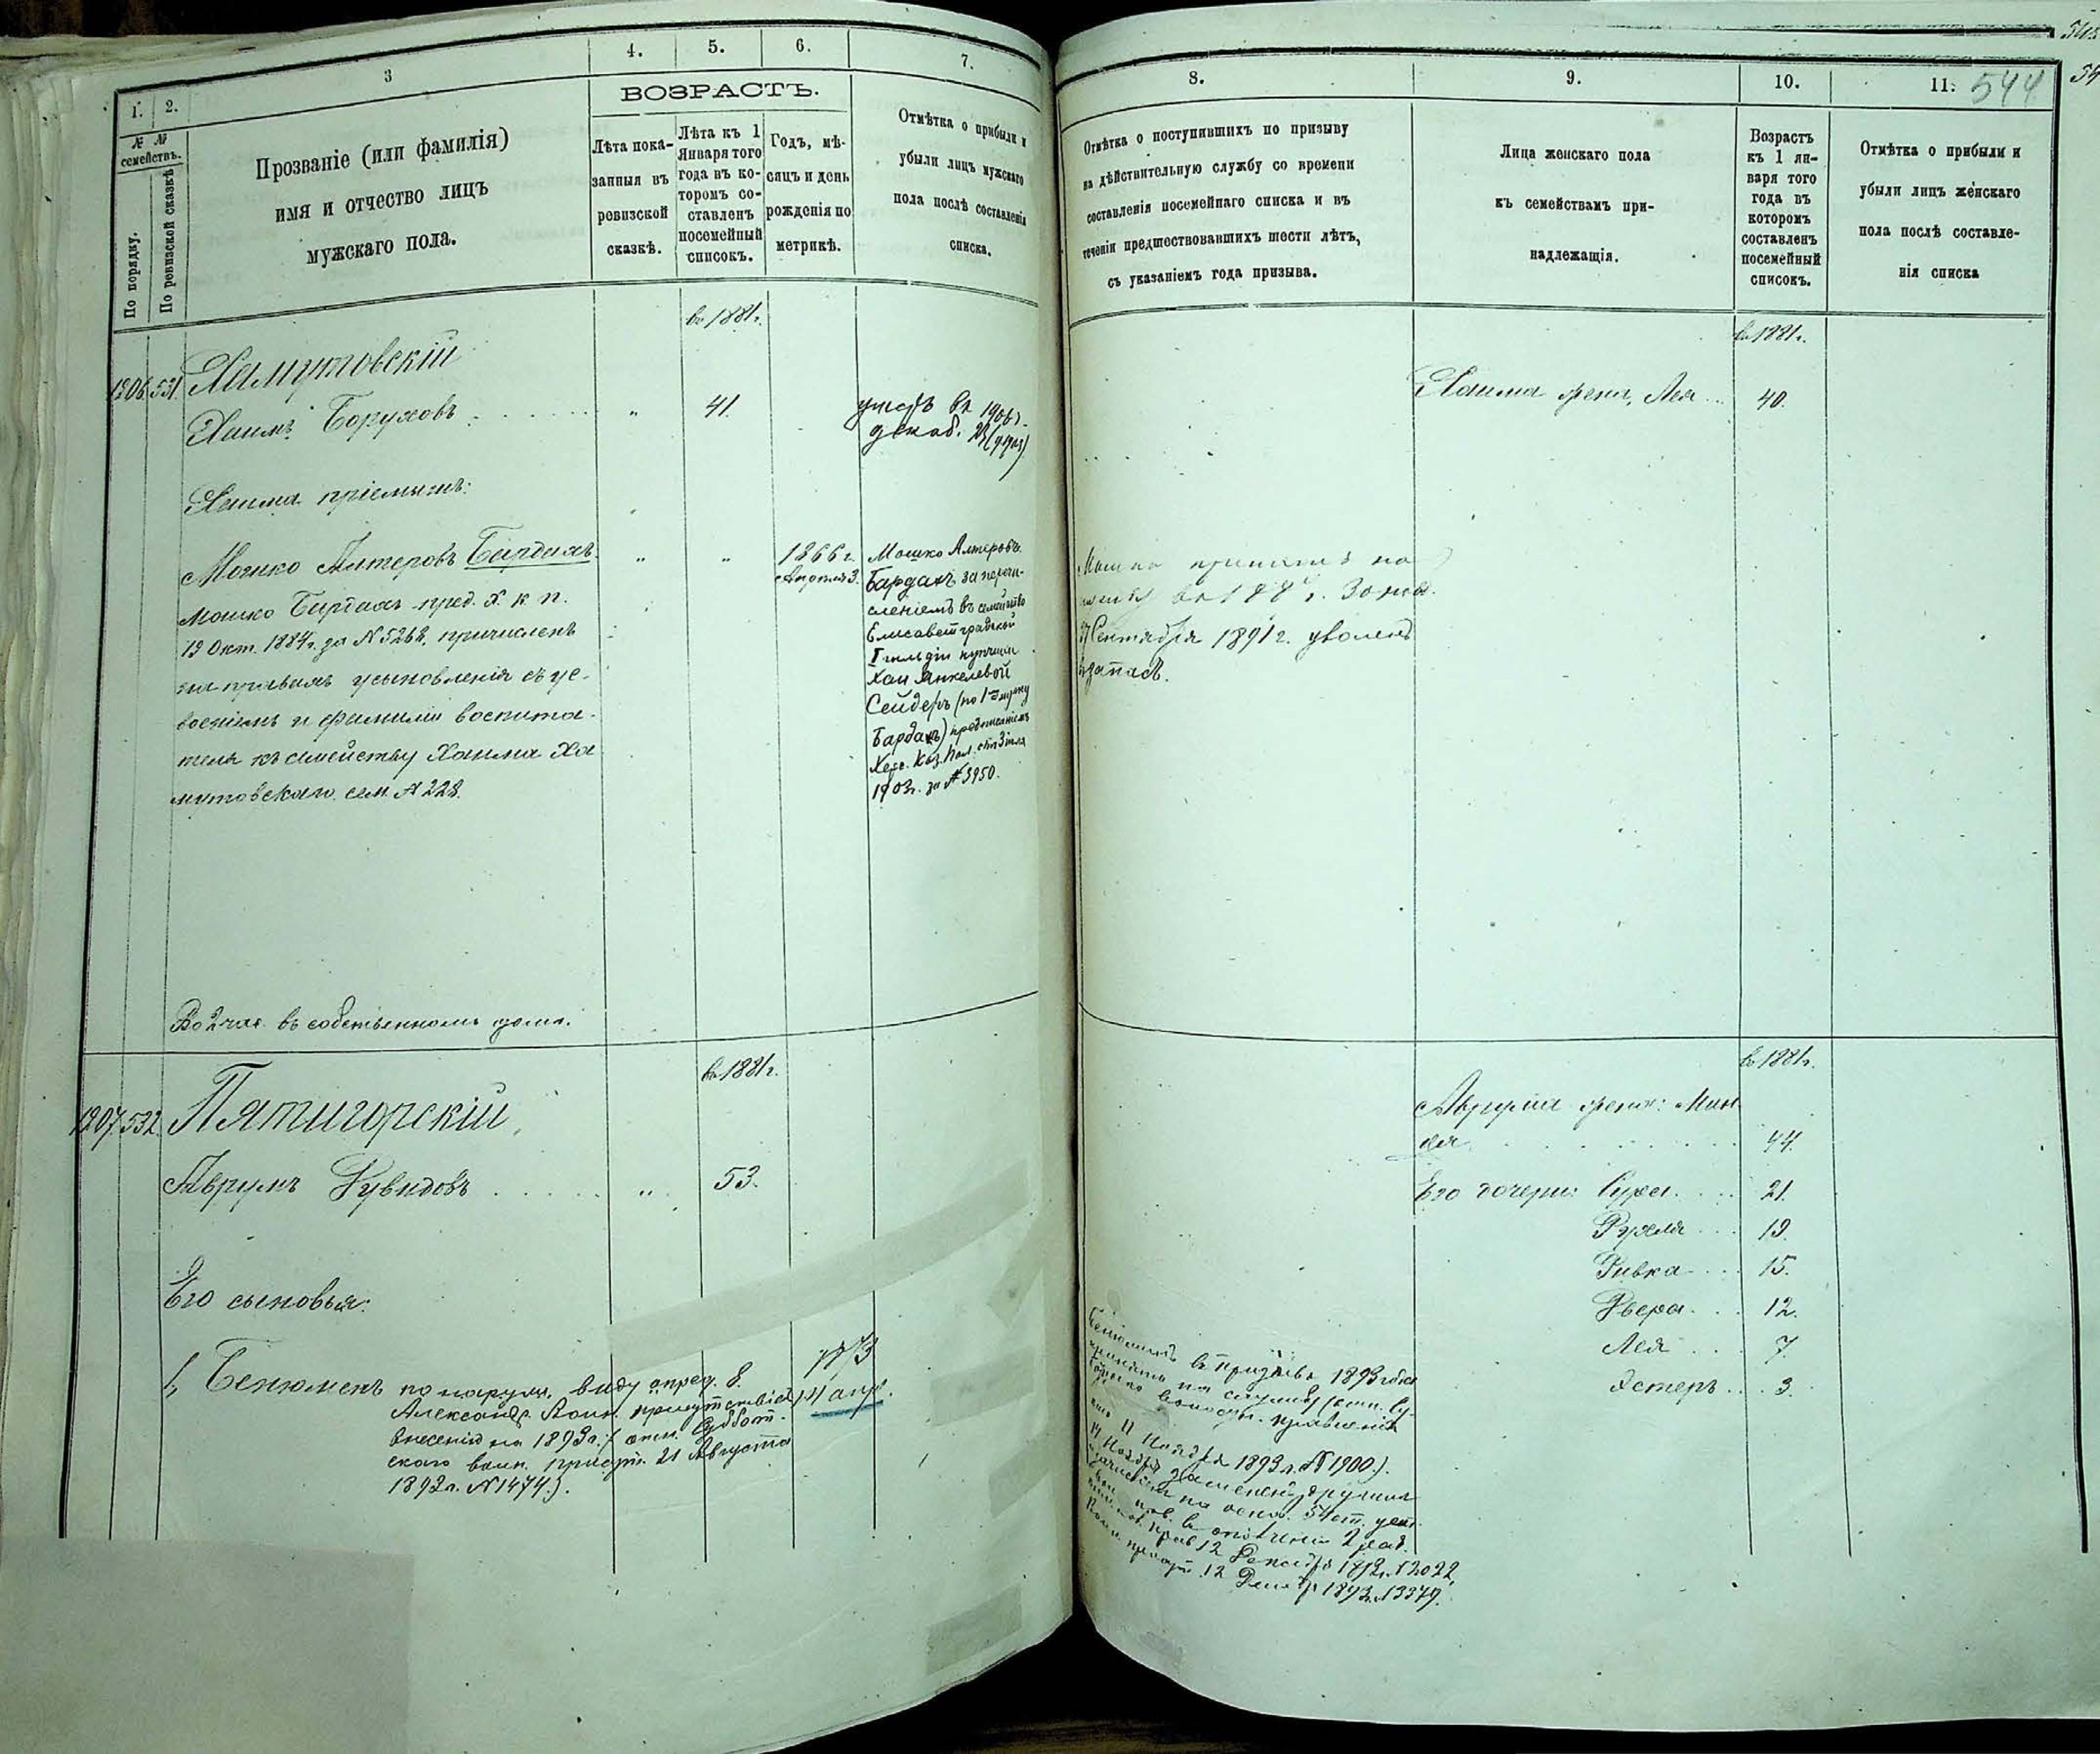 1.
2.
3
4.
5.
6.
7.
№ №
семействъ.
По порядку.
По ревизской сказкѣ
Прозваніе (или фамилія)
имя и отчество лицъ
мужскаго пола.
ВОЗРАСТЪ.
Лѣта пока-
занныя въ
ревизской
сказкѣ.
Лѣта къ 1
Января того
года въ ко-
торомъ со-
ставленъ
посемейный
списокъ.
Годъ, мѣ-
сяцъ и день
рожденія по
метрикѣ.
Отмѣтка о прибыли и
убыли лицъ мужскаго
пола послѣ составленія
списка.
въ 1881 г.
1206 531 Хамутовскій
Хаимъ Боруховъ " 41.
умеръ въ 1906 г.
декаб.
Хаима пріемышъ:
Мошко Алтеровъ Бардахъ " " 1866 г.
Апрѣля 3.
Мошко Бардахъ пред. Х. к. п.
19 Окт. 1884 г. за № 5268, причисленъ
на правахъ усыновленія съ ус-
военіемъ и фамиліи воспита-
теля къ семейству Хаима Ха
мутовскаго сем. № 228.
Мошко Алтеровъ
Бардахъ за перечи-
сленіемъ въ семейство
Елисаветградской
I гильдіи купчихи
Хаи Янкелевой
Сейдеръ (по 1 мужу
Бардахъ) предписаніемъ
Херс. Каз. Пал. отъ 3 іюля
1903 г. за № 3950.
Во 2 час. въ собственномъ домѣ.
въ 1881 г.
1207 532 Пятигорскій
Аврумъ Дувидовъ " 53.
Его сыновья:
1, Бенюменъ по наружн. виду опред. 8.
1873
14 апр.
Александр. Воин. присутствіемъ
внесенію на 1893 г. (отн. Суббот-
скаго вол. 21 Августа
1892 г. № 1474).
8.
9.
10.
11.
544
Отмѣтка о поступившихъ по призыву
на дѣйствительную службу со времени
составленія посемейнаго списка и въ
теченіи предшествовавшихъ шести лѣтъ,
съ указаніемъ года призыва.
Лица женскаго пола
къ семействамъ при-
надлежащія.
Возрастъ
къ 1 ян-
варя того
года въ
которомъ
составленъ
посемейный
списокъ.
Отмѣтка о прибыли и
убыли лицъ женскаго
пола послѣ составле-
нія списка
въ 1881 г.
Хаима жена, Лея 40.
Мошко принятъ на
службу въ
Сентября 1891 г. уволенъ
въ запасъ.
въ 1881 г.
Аврума жена: Мин
44.
Его дочери: Сура 21.
Рухля 19.
Ривка 15.
Двера 12.
Лея 7.
Эстеръ 3.
Бенюменъ въ призывъ 1893 года
принятъ на службу (отн. Су-
ботско волостн. правленія
11 Ноября 1893 г. № 1900).
14 Ноября замененъ другимъ
на основ. 54 ст. уст.
въ ополченіе 2 раз.
12 Декабря № 2022
12 Декабр 1893 г. № 3379.